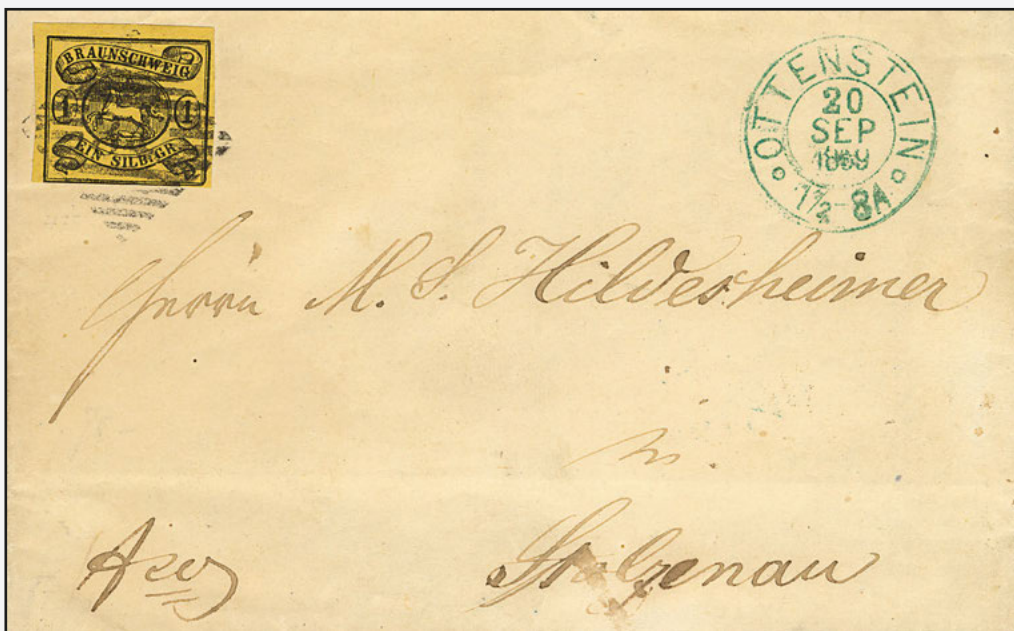 BRAUNSCHWEIG
1 1
EIN SILB.GR.
OTTENSTEIN
20
SEP
7½-8A
Herrn M. S. Hildesheimer
in
Stolzenau